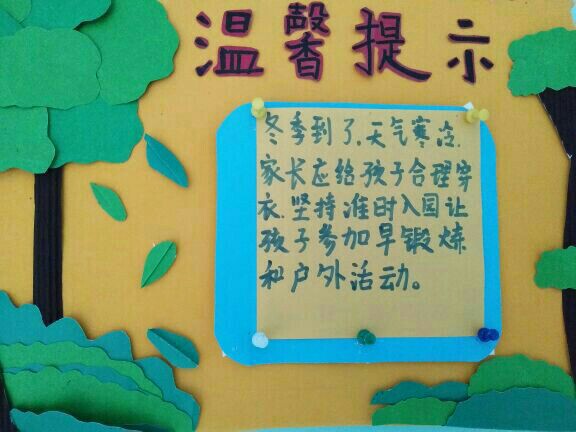 温馨提示
冬季到了,天气寒冷.
家长应给孩子合理穿
衣.坚持准时入园让
孩子参加早锻炼
和户外活动。